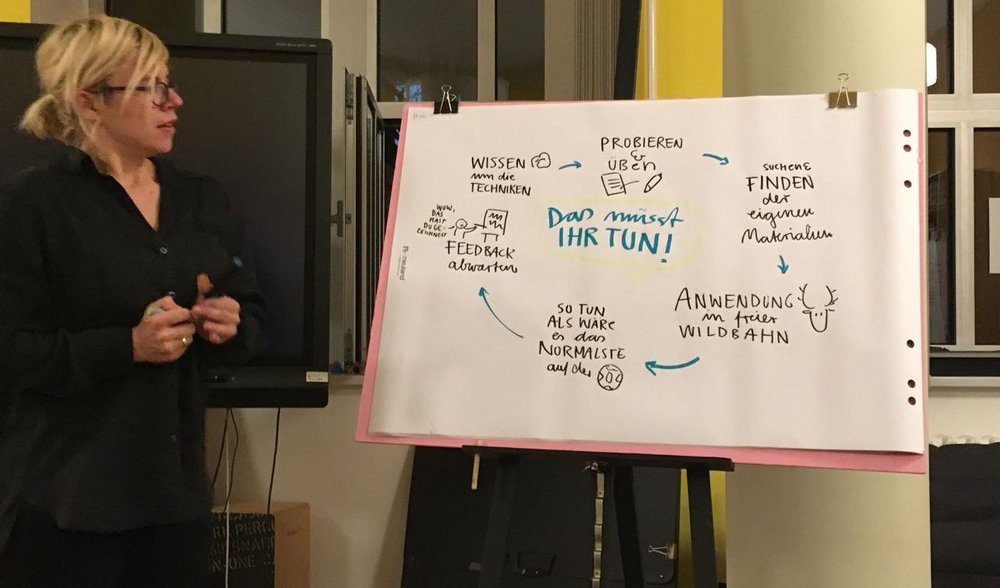 WISSEN
um die
TECHNIKEN
PROBIEREN
&
ÜBEN
SUCHEN &
FINDEN
der
eigenen
Materialien
ANWENDUNG
in freier
WILDBAHN
SO TUN
ALS WÄRE
es das
NORMALSTE
auf der
WOW,
DAS
HAST
DU GE-
ZEICHNET
FEEDBACK
abwarten
Das müsst
IHR TUN!
neuland